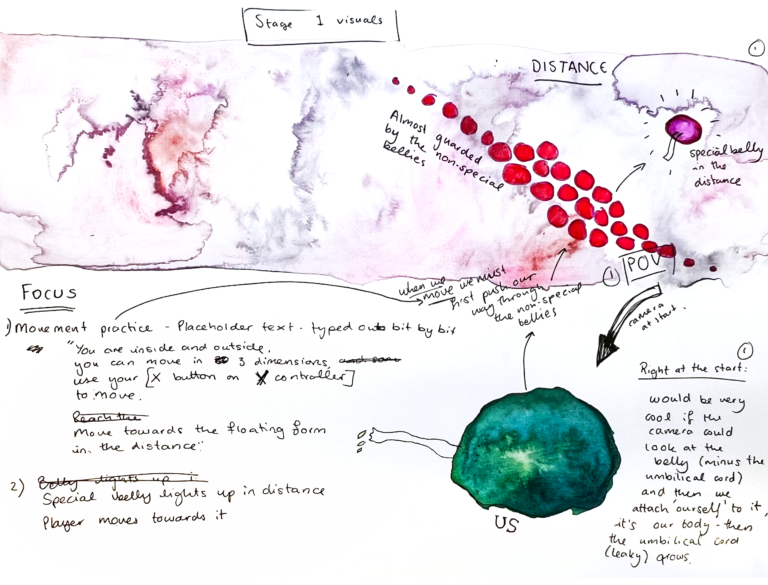 Stage 1 visuals
DISTANCE
1
Almost guarded
by the non-special
bellies
special belly
in the
distance
1
POV
camera
at start.
when we
move we must
first push our
way through
the non-special
bellies
FOCUS
1) Movement practice - Placeholder text - typed out bit by bit
"You are inside and outside,
you can move in 3 dimensions,
use your [X button on X controller]
to move.
Reach the
Move towards the floating form
in the distance."
2) Belly lights up i
Special belly lights up in distance
Player moves towards it
US
1
Right at the start:
would be very
cool if the
camera could
look at the
belly (minus the
umbilical cord)
and then we
attach 'ourself' to it,
it's our body - then
the umbilical cord
(leaky) grows.